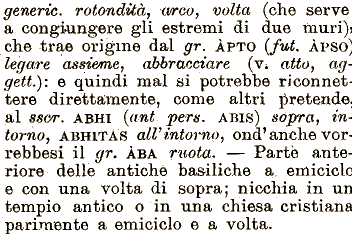 generic. rotondità, arco, volta (che serve
a congiungere gli estremi di due muri),
che trae origine dal gr. ÀPTO (fut. ÀPSO)
legare assieme, abbracciare (v. atto, ag-
gett.): e quindi mal si potrebbe riconnet-
tere direttamente, come altri pretende,
al sscr. ABHI (ant pers. ABIS) sopra, in-
torno, ABHITÀS all'intorno, ond'anche vor-
rebbesi il gr. ÀBA ruota. — Parte ante-
riore delle antiche basiliche a emiciclo
e con una volta di sopra; nicchia in un
tempio antico o in una chiesa cristiana
parimente a emiciclo e a volta.